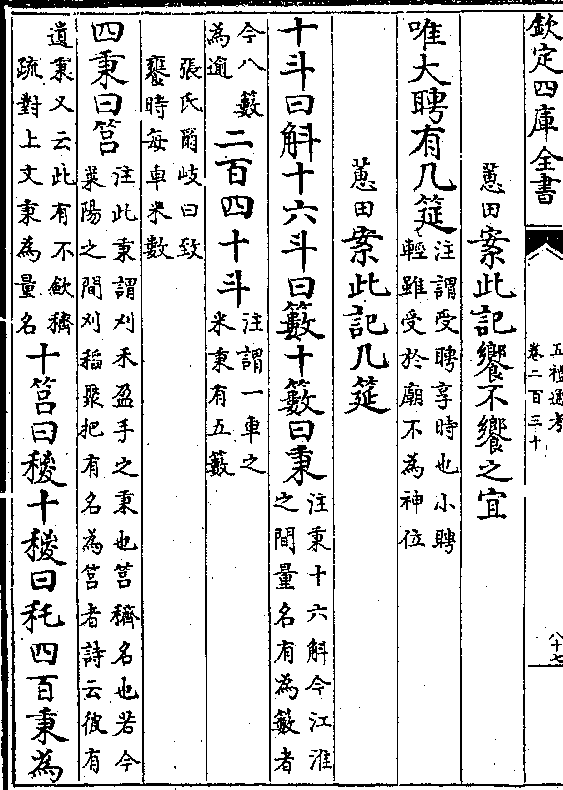 欽定四庫全書
五禮通考
卷二百三十
八十七
蕙田案此記饗不饗之宜
唯大聘有几筵
注謂受聘享時也小聘
輕雖受於廟不為神位
蕙田案此記几筵
十斗曰斛十六斗曰籔十籔曰秉
注秉十六斛今江淮
之間量名有為籔者
今八籔
為逾
二百四十斗
注謂一車之
米秉有五籔
張氏爾岐曰致
饔時每車米數
四秉曰筥
注此秉謂刈禾盈手之秉也筥穧名也若今
萊陽之間刈稻聚把有名為筥者詩云彼有
遺秉又云此有不斂穧
疏對上文秉為量名
十筥曰稯十稯曰秅四百秉為